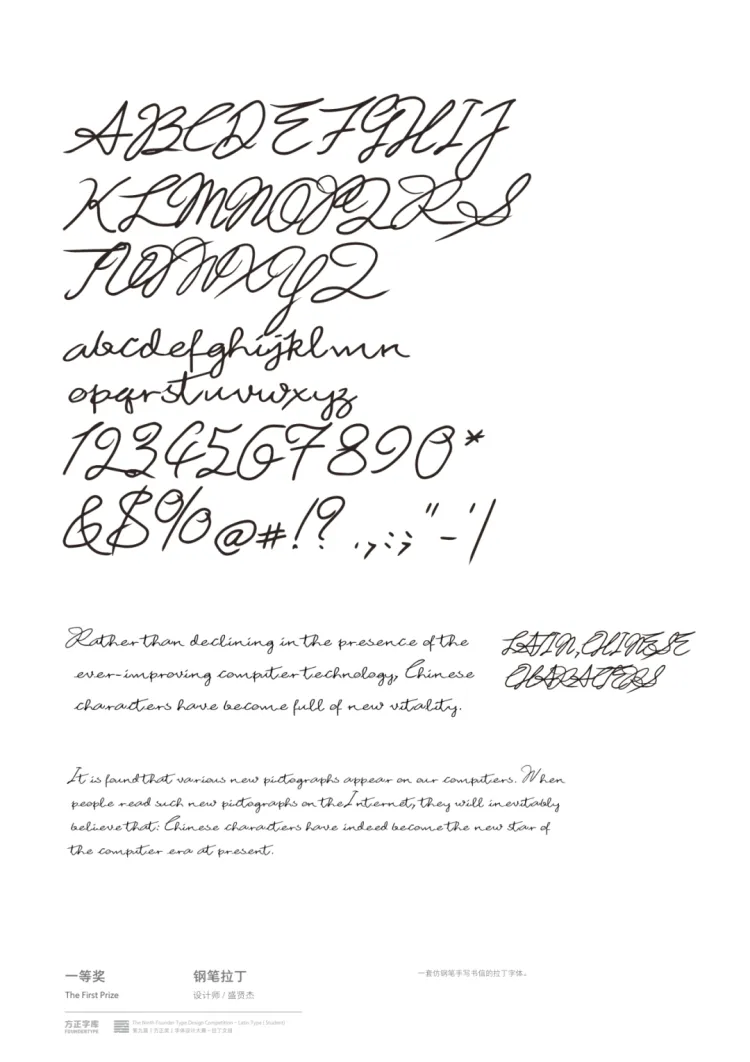 ABCDEFGHIJ
KLMNOPQRS
TUVWXYZ
abcdefghijklmn
opqrstuvwxyz
1234567890*
&$%@#!?.,:;"-'/
Rather than declining in the presence of the
ever-improving computer technology, Chinese
characters have become full of new vitality.
LATIN, CHINESE
CHARACTERS
It is found that various new pictographs appear on our computers. When
people read such new pictographs on the Internet, they will inevitably
believe that: Chinese characters have indeed become the new star of
the computer era at present.
一等奖
The First Prize
钢笔拉丁
设计师 / 盛贤杰
一套仿钢笔手写书信的拉丁字体。
方正字库
FOUNDERTYPE
The Ninth Founder Type Design Competition - Latin Type ( Student)